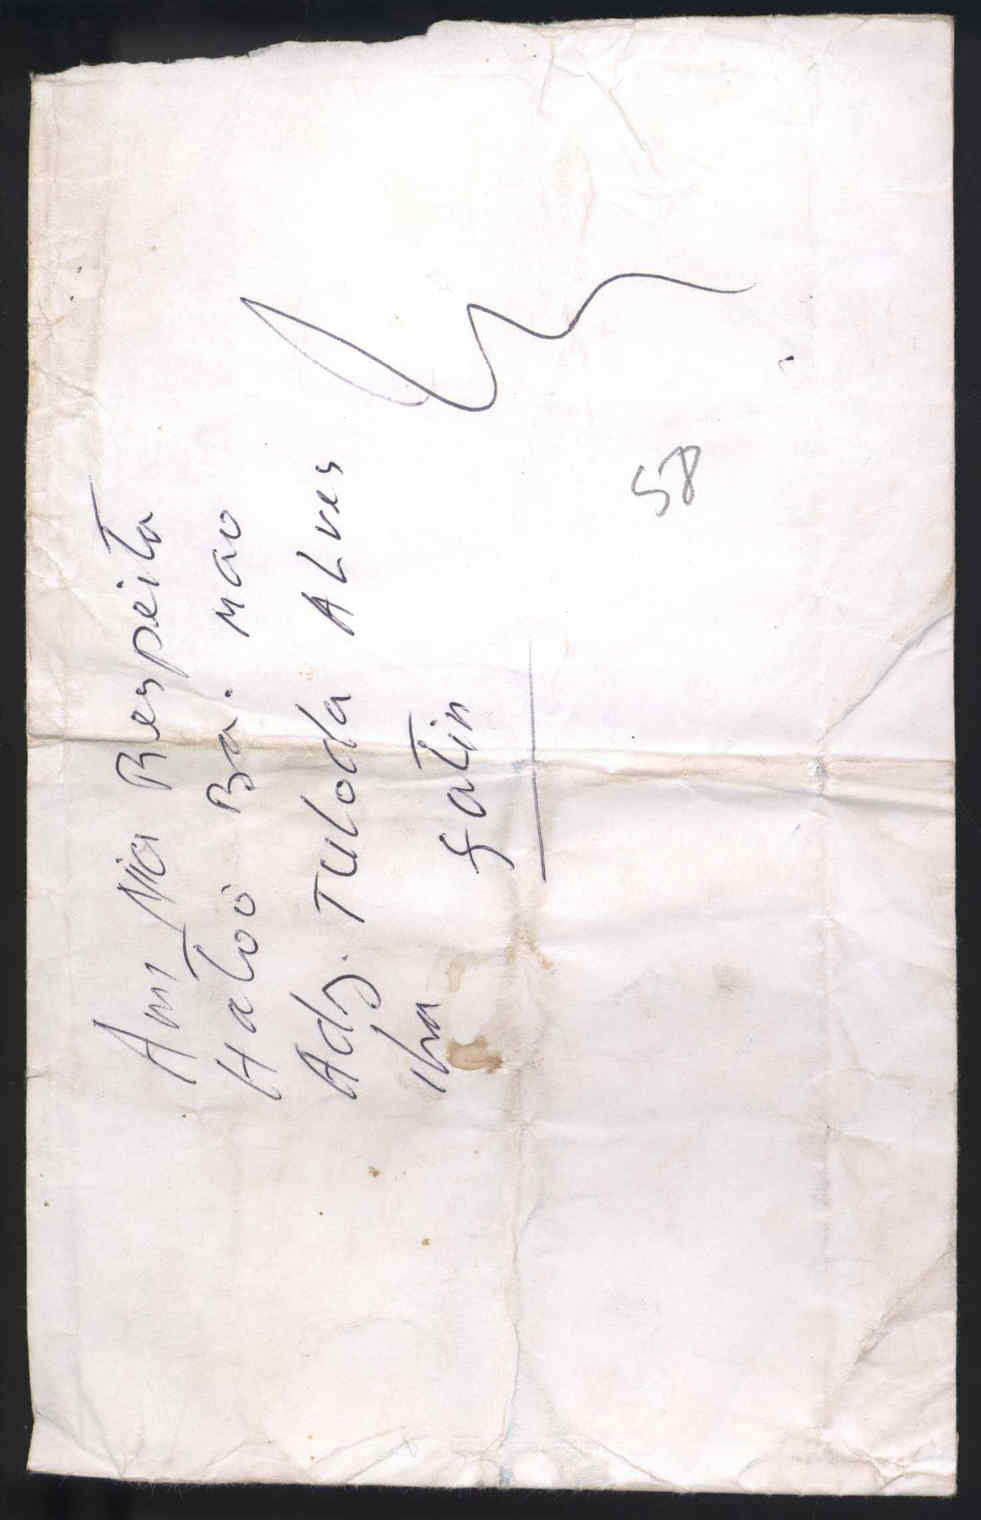 Ami Nia Respeita
Hatoo Ba. Mao
Adj. Tuloda ALves
iha fatin
58